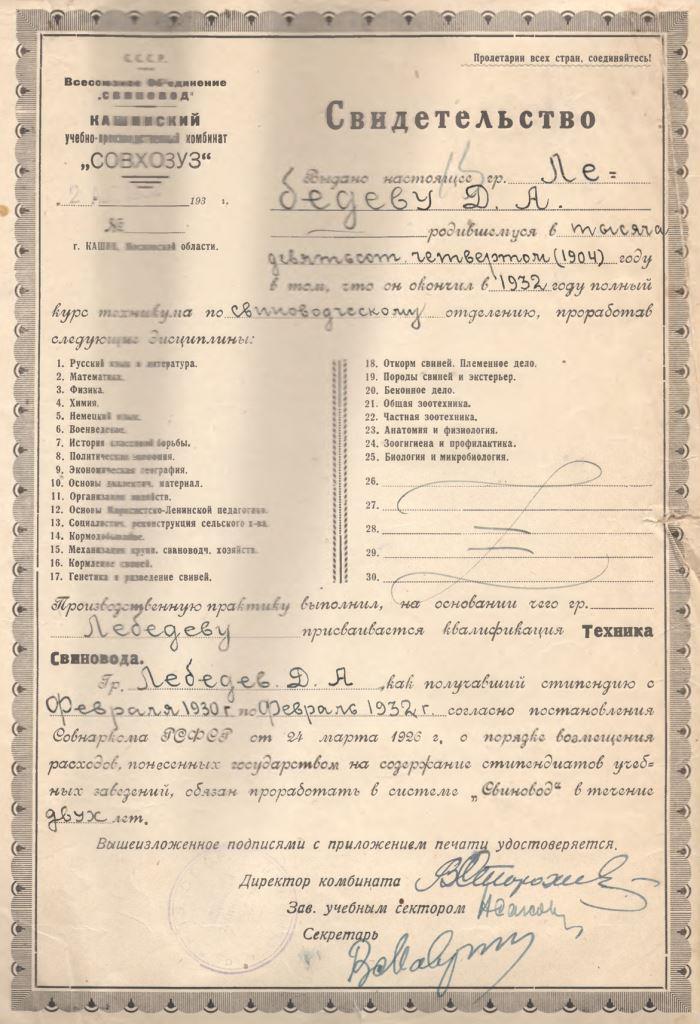 С.С.С.Р.
Всесоюзное Объединение
„СВИНОВОД"
КАШИНСКИЙ
учебно-производственный комбинат
„СОВХОЗУЗ"
193 г.
№
г. КАШИН, Московской области.
Пролетарии всех стран, соединяйтесь!
Свидетельство
Выдано настоящее гр. Ле=
бедеву Д. А.
родившемуся в тысяча
девятьсот четвертом (1904) году
в том, что он окончил в 1932 году полный
курс техникума по свиноводческому отделению, проработав
следующие дисциплины:
1. Русский язык и литература.
2. Математика.
3. Физика.
4. Химия.
5. Немецкий язык.
6. Военведение.
7. История классовой борьбы.
8. Политическая экономия.
9. Экономическая география.
10. Основы диалектич. материал.
11. Организация хозяйств.
12. Основы Марксистско-Ленинской педагогики.
13. Социалистич. реконструкция сельского х-ва.
14. Кормодобывание.
15. Механизация крупн. свановодч. хозяйств.
16. Кормление свиней.
17. Генетика и разведение свиней.
18. Откорм свиней. Племенное дело.
19. Породы свиней и экстерьер.
20. Беконное дело.
21. Общая зоотехника.
22. Частная зоотехника.
23. Анатомия и физиология.
24. Зоогигиена и профилактика.
25. Биология и микробиология.
26.
27.
28.
29.
30.
Производственную практику выполнил, на основании чего гр.
Лебедеву присваивается квалификация Техника
Свиновода.
Гр. Лебедев. Д. А, как получавший стипендию с
Февраля 1930 г. по Февраль 1932 г. согласно постановления
Совнаркома РСФСР от 24 марта 1926 г, о порядке возмещения
расходов, понесенных государством на содержание стипендиатов учеб=
ных заведений, обязан проработать в системе „Свиновод" в течение
двух лет.
Вышеизложенное подписями с приложением печати удостоверяется.
Директор комбината
Зав. учебным сектором
Секретарь